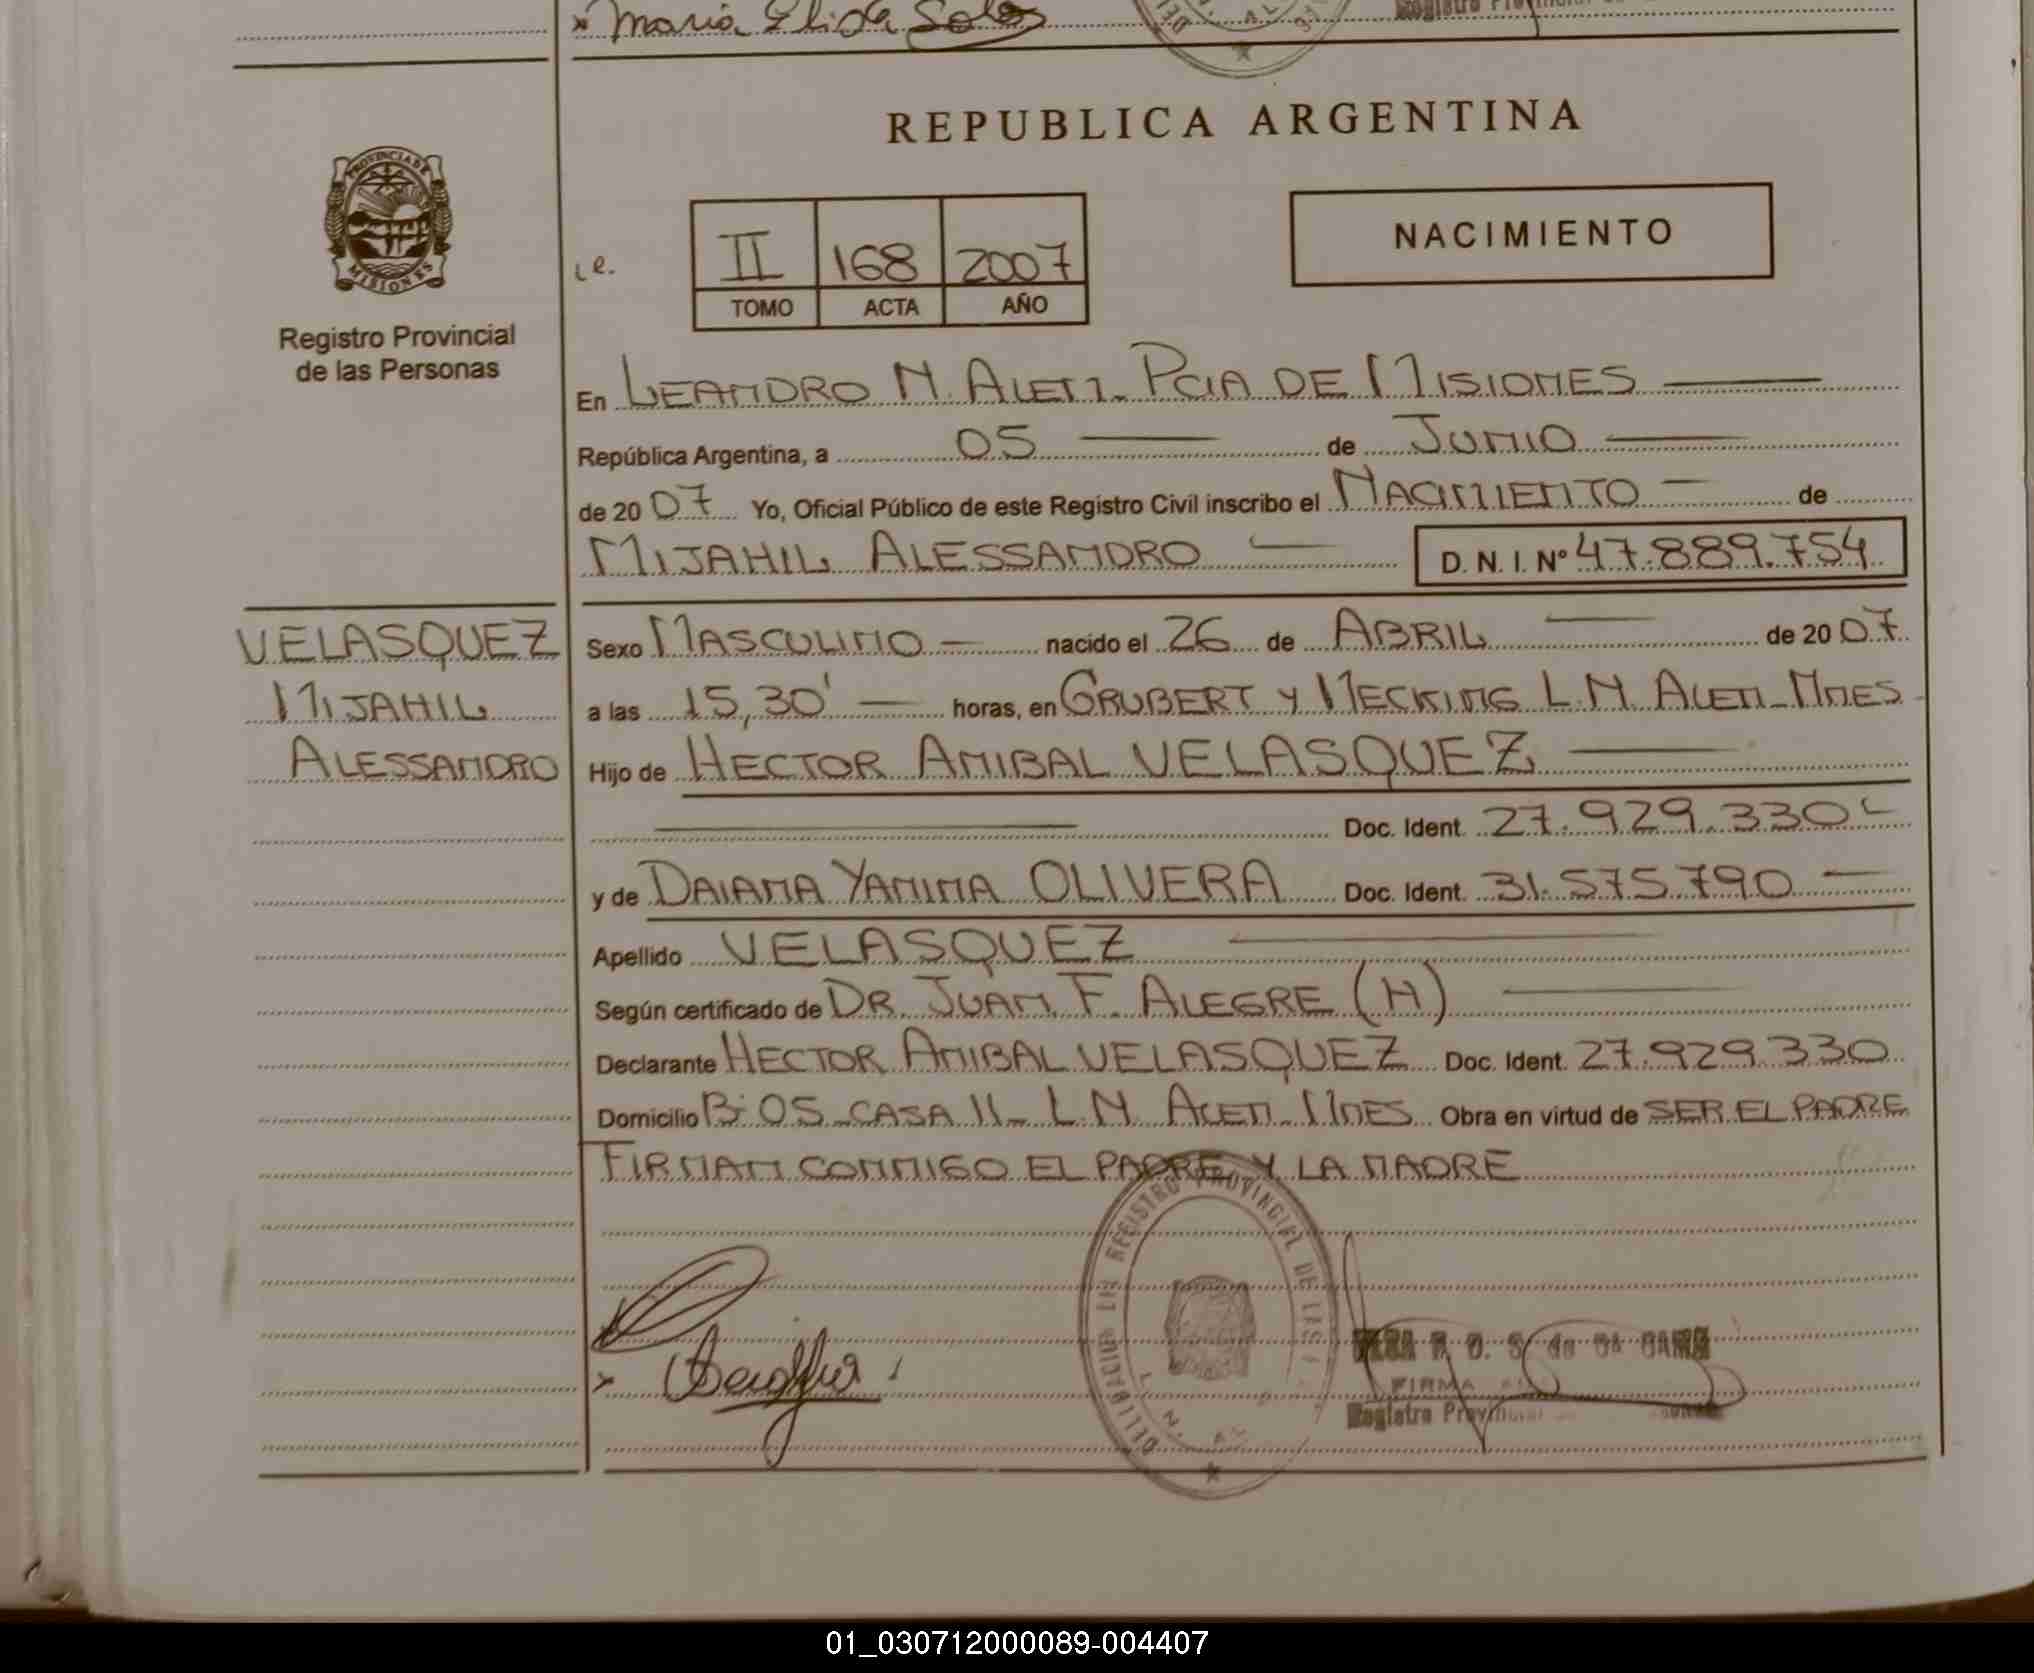 Maria Elisa Soles
REPUBLICA ARGENTINA
PROVINCIA DE MISIONES
Registro Provincial
de las Personas
II 168 2007
TOMO ACTA AÑO
NACIMIENTO
En LEANDRO N. ALEM. PCIA DE MISIONES
República Argentina, a 05 de JUNIO
de 2007 Yo, Oficial Público de este Registro Civil inscribo el NACIMIENTO de
MIJAHIL ALESSANDRO D. N. I. Nº 47.889.754
VELASQUEZ
MIJAHIL
ALESSANDRO
Sexo MASCULINO nacido el 26 de ABRIL de 2007
a las 15,30' horas, en GRUBERT Y MECKING L.N. ALEM - MNES
Hijo de HECTOR ANIBAL VELASQUEZ
Doc. Ident. 27.929.330
y de DAIANA YANINA OLIVERA Doc. Ident. 31.575.790
Apellido VELASQUEZ
Según certificado de DR. JUAN F. ALEGRE (H)
Declarante HECTOR ANIBAL VELASQUEZ Doc. Ident. 27.929.330
Domicilio Bº 05 - CASA 11 - L.N. ALEM - MNES Obra en virtud de SER EL PADRE
FIRMAN CONMIGO EL PADRE Y LA MADRE
REGISTRO PROVINCIAL DE LAS
FIRMA
Registro Provincial
01_030712000089-004407